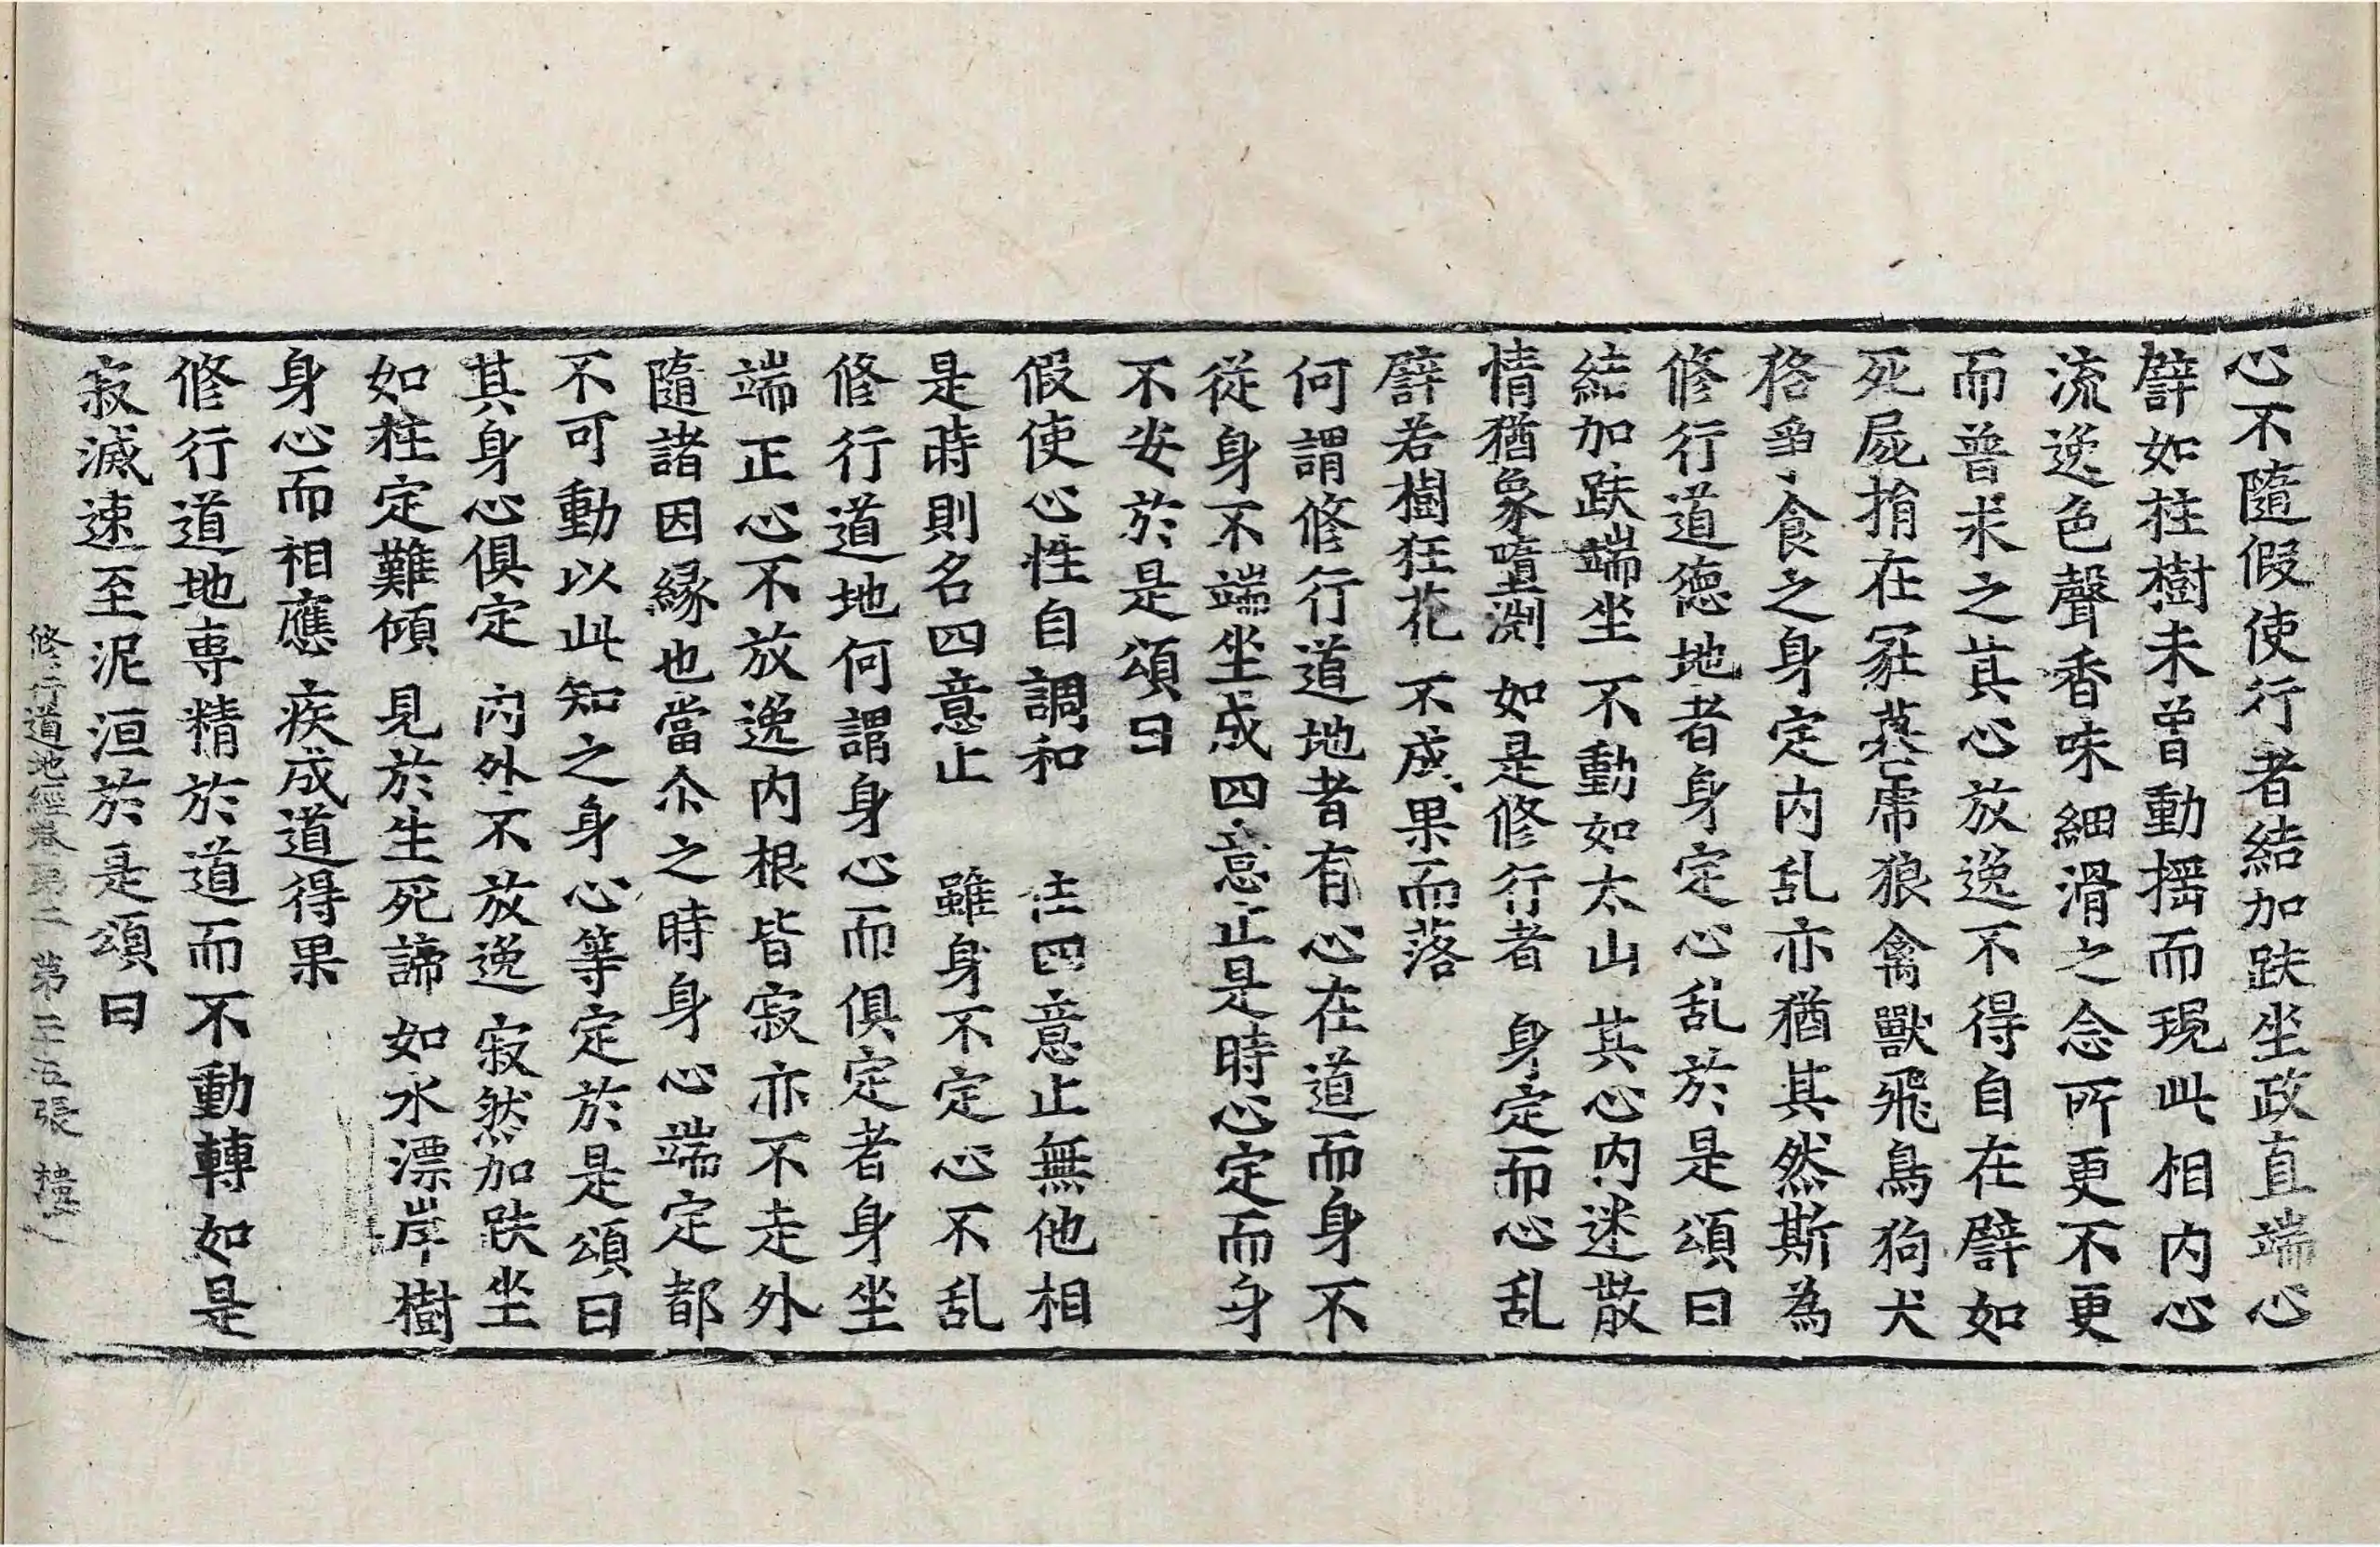 心不隨假使行者結加趺坐政直端心
譬如柱樹未曾動揺而現此相内心
流逸色聲香味細滑之念所更不更
而普求之其心放逸不得自在譬如
死屍捐在冢墓虎狼禽獸飛鳥狗犬
格爭食之身定内乱亦猶其然斯為
修行道徳地者身定心乱於是頌曰
結加趺端坐　不動如太山　其心内迷散
情猶象墮渕　如是修行者　身定而心乱
譬若樹狂花　不成果而落
何謂修行道地者有心在道而身不
從身不端坐成四意止是時心定而身
不安於是頌曰
假使心性自調和　住四意止無他相
是時則名四意止　雖身不定心不乱
修行道地何謂身心而俱定者身坐
端正心不放逸内根皆寂亦不走外
隨諸因縁也當尒之時身心端定都
不可動以此知之身心等定於是頌曰
其身心俱定　内外不放逸　寂然加趺坐
如柱定難傾　見於生死諦　如水漂岸樹
身心而相應　疾成道得果
修行道地専精於道而不動轉如是
寂滅速至泥洹於是頌曰
修行道地經卷第二　第二十五張